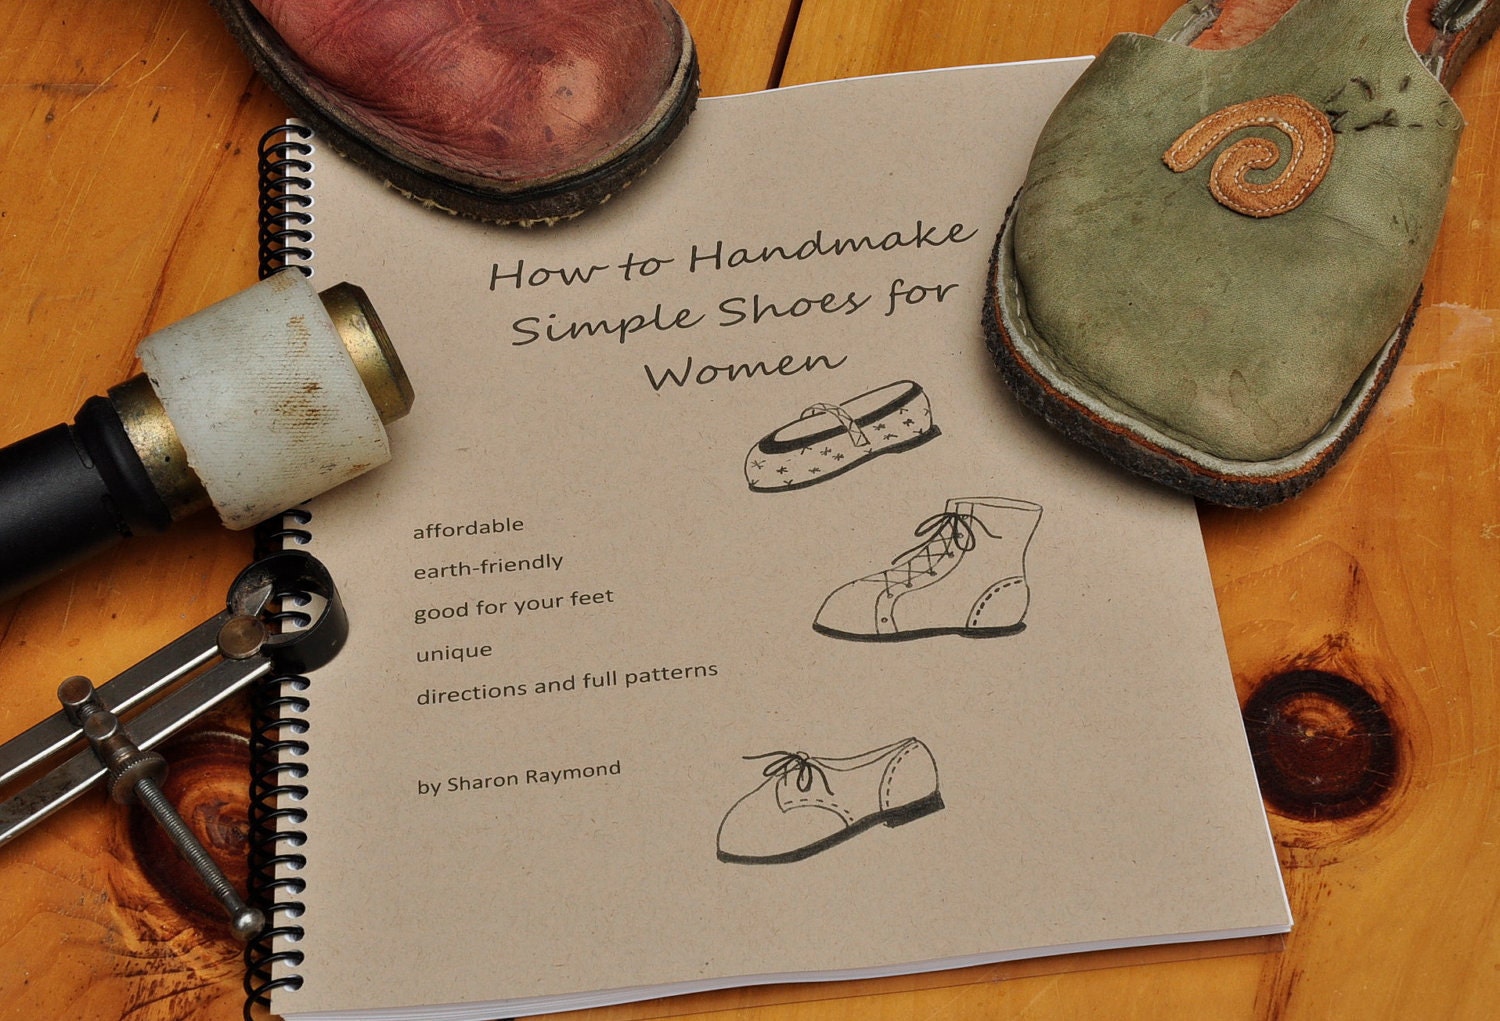 How to Handmake
Simple Shoes for
Women
affordable
earth-friendly
good for your feet
unique
directions and full patterns
by Sharon Raymond